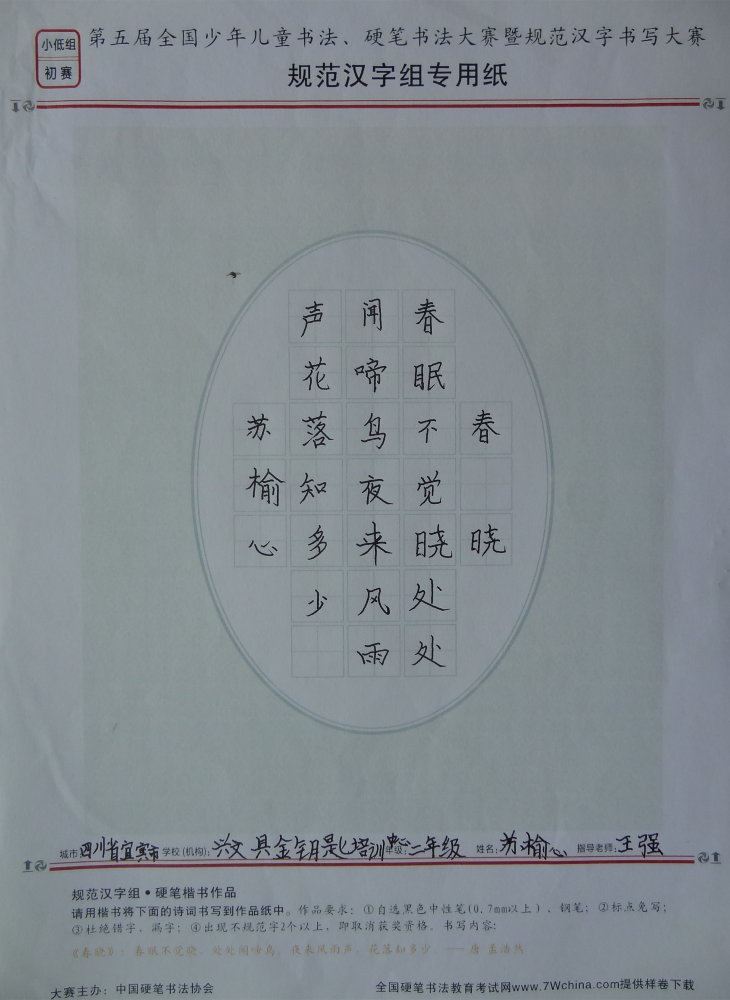 小低组
初赛
第五届全国少年儿童书法、硬笔书法大赛暨规范汉字书写大赛
规范汉字组专用纸
春晓
春眠不觉晓处处
闻啼鸟夜来风雨
声花落知多少
苏榆心
城市:四川省宜宾市 学校(机构):兴文县金钥匙培训中心 年级:二年级 姓名:苏榆心 指导老师:王强
规范汉字组•硬笔楷书作品
请用楷书将下面的诗词书写到作品纸中。作品要求:①自选黑色中性笔(0.7mm以上)、钢笔;②标点免写;
③杜绝错字、漏字;④出现不规范字2个以上,即取消获奖资格。书写内容:
《春晓》:春眠不觉晓,处处闻啼鸟。夜来风雨声,花落知多少。——唐 孟浩然
大赛主办:中国硬笔书法协会
全国硬笔书法教育考试网www.7Wchina.com提供样卷下载